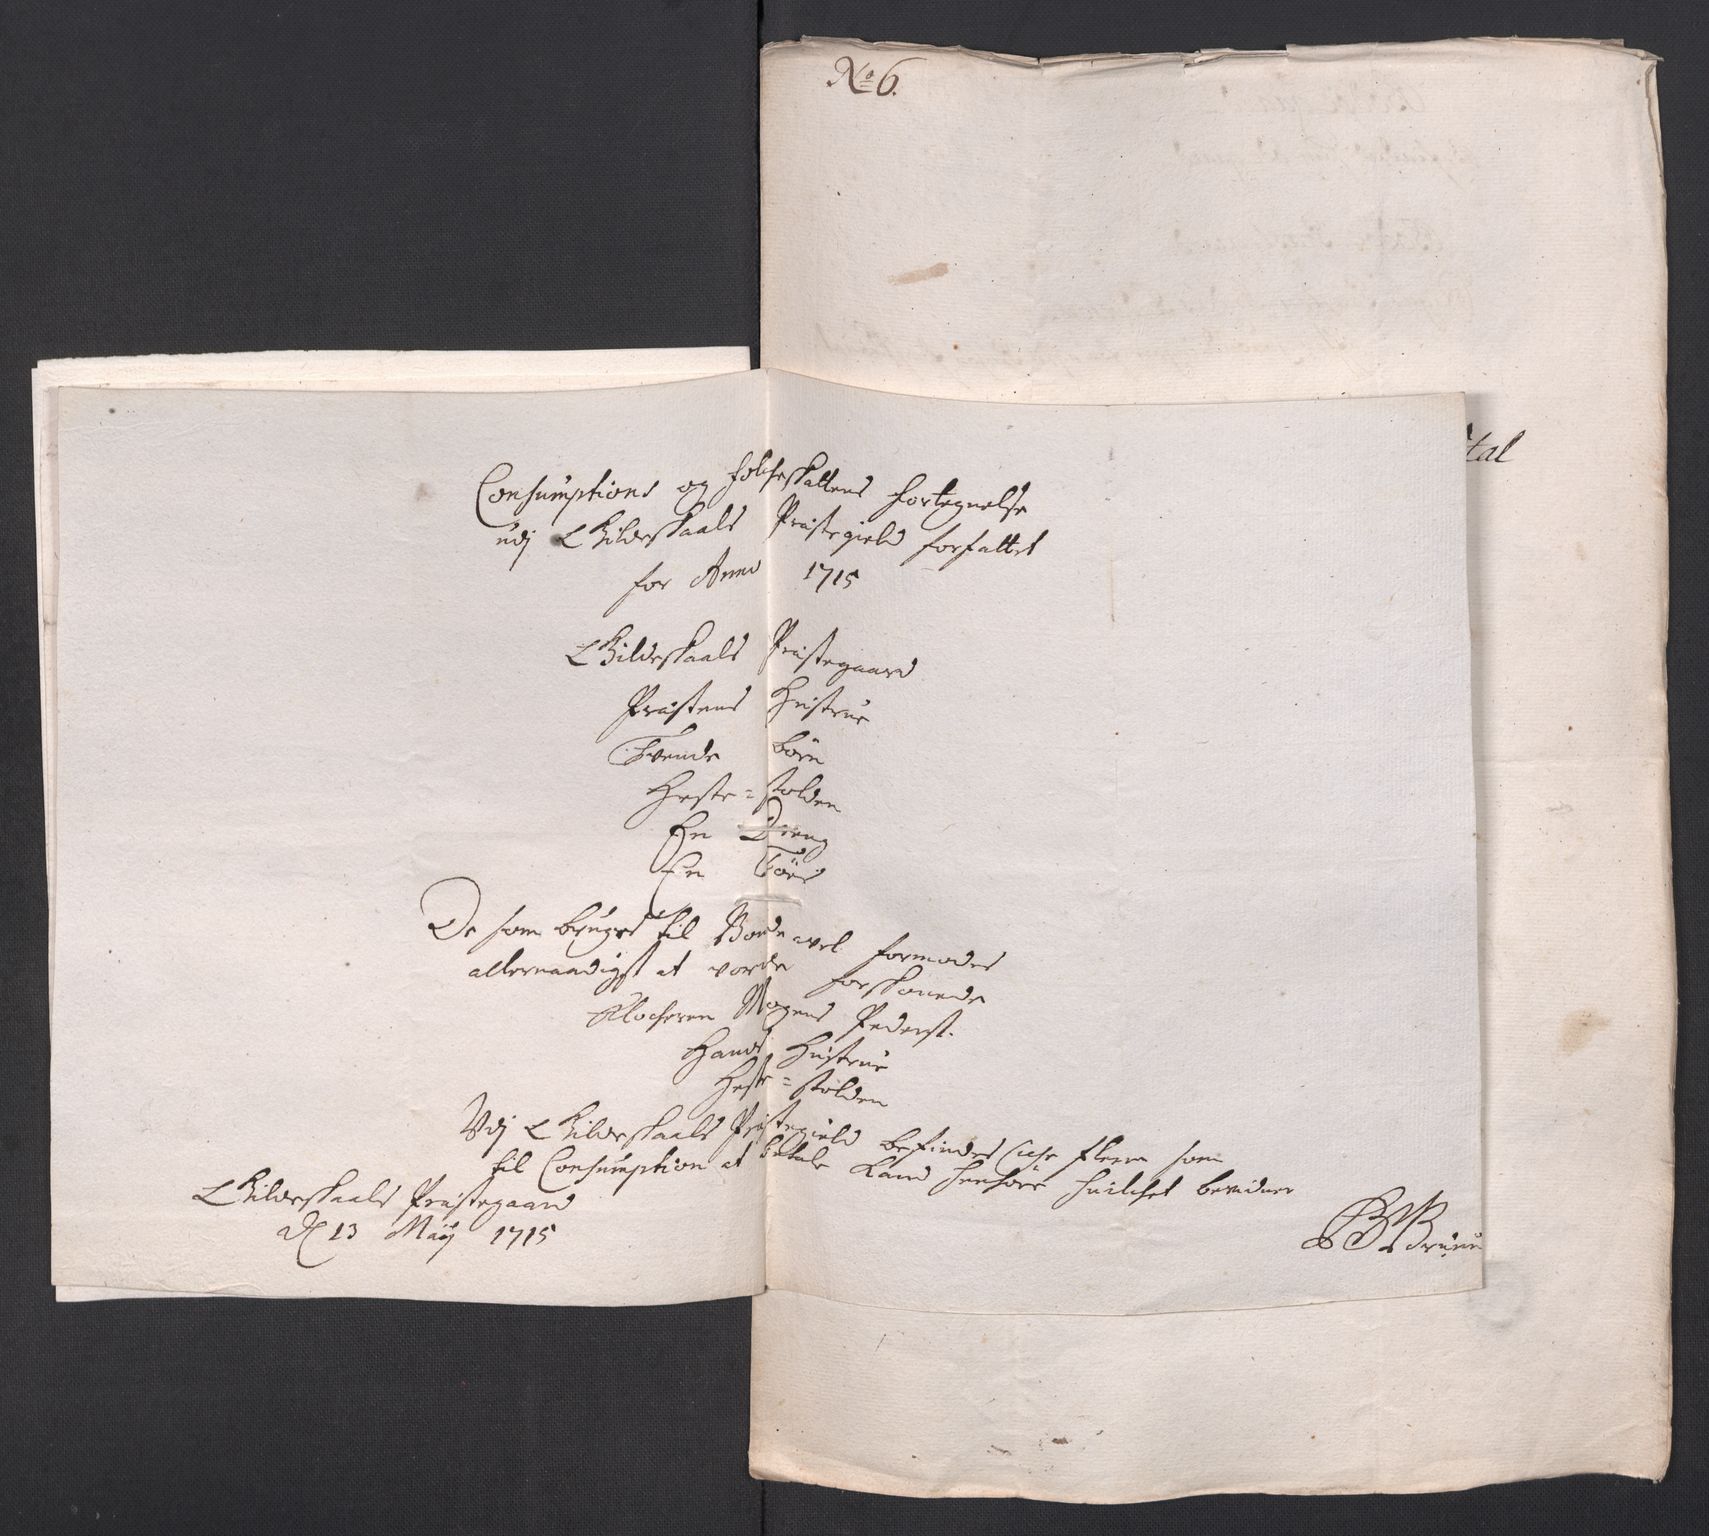 No 6.
tal
Consumptions og folcheskattens fortegnelse
udj Gildeskaals Præstegield forfattet
for Anno 1715
Gildeskaals Præstegaard
Præstens Hustrue
Tvende børn
Heste=stolden
En Dreng
En Tøes
De som bruges til Bonde avel formodes
allernaadigst at vorde forskonede
Klocheren Mogens Pederst.
Hands Hustrue
Heste=stolden
Udj Gildeskaals Præstegield befindes iche fleere som
til Consumption at betale kand henhøre hvilchet bevidner
Gildeskaals Præstegaard
d 13 Maij 1715
Bruun